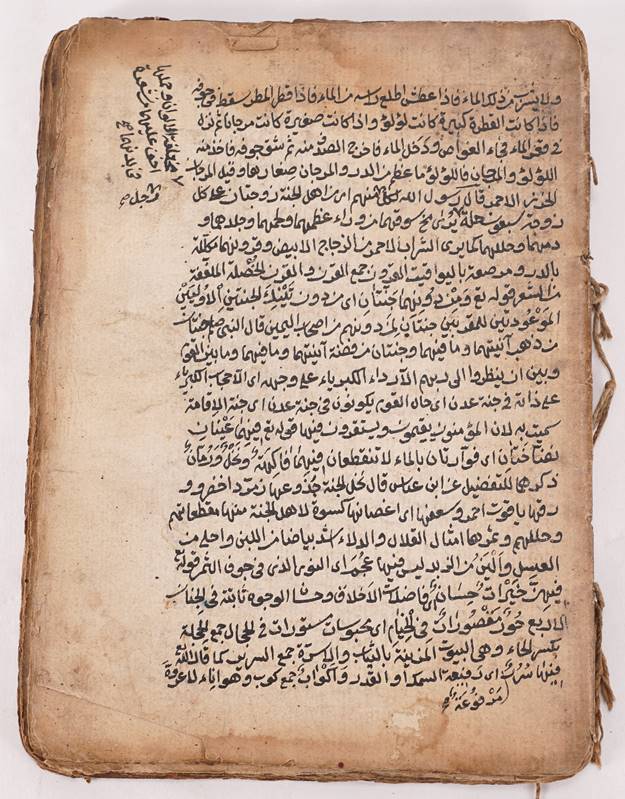 ولا يشرب من ذلك الماء فاذا عطش اطلع راسه من الماء فاذا قطر المطر سقط في جوفه
فاذا كانت القطرة كبيرة كانت لؤلؤ واذا كانت صغيرة كانت مرجانا ثم
في قعر الماء فيجيء الغواص ودخل الماء فاخرج الصدف منه ثم شق جوفه فاخذ منه
اللؤلؤ والمرجان فاللؤلؤ ما عظم من الدر والمرجان صغارها وقيل المرجان
الخرز الاحمر قال رسول الله لكل منهم امرء من اهل الجنة زوجتان على كل
زوجة سبعون حلة يرى مخ سوقهما من وراء عظمهما ولحمهما وجلدهما و
دمهما وحللهما كما يرى الشراب الاحمر من الزجاج الابيض وقرونهما مكللة
بالدر ومرصعة باليواقيت القرون جمع القرن والقرن الخصلة الملففة
من الشعر قوله تع ومن دونهما جنتان اى من دون تينك الجنتين الاوليين
الموعودتين للمقربين جنتان لمن دونهم من اصحاب اليمين قال النبي صلعم جنتان
من ذهب آنيتهما وما فيهما وجنتان من فضة آنيتهما وما فيهما وما بين القوم
وبين ان ينظروا الى ربهم الا رداء الكبرياء على وجهه اى الا حجاب الكبرياء
على ذاته في جنة عدن اى حال القوم يكونون في جنة عدن اى جنة الاقامة
سميت به لان المؤمنون يقيمون ويستقرون فيها قوله تع فيهما عينان
نضاختان اى فوارتان بالماء لا تنقطعان فيهما فاكهة ونخل ورمان
ذكرهما للتفضيل عن ابن عباس قال نخل الجنة جذوعها زمرد اخضر و
ورقها ياقوت احمر وسعفها اى اغصانها كسوة لاهل الجنة منها مقطعاتهم
وحللهم وثمرها امثال القلال والدلاء اشد بياضا من اللبن واحلى من
العسل والين من الزبد ليس فيها عجم اى النوى الذى في جوف التمر قوله
فيهن خيرات حسان اى فاضلات الاخلاق وحسان الوجوه ثابتة في الجنات
الاربع حور مقصورات في الخيام اى محبوسات مستورات في الحجال جمع الحجلة
بكسر الحاء وهي البيوت المزينة بالثياب والاسرة جمع السرير كما قال الله تع
فيها سرر اى رفيعة السمك او القدر واكواب جمع كوب وهو اناء لا عروة
مرفوعة
مختلفة الالوان وحملها
اخف عليهما من شعرة
في بدنهما